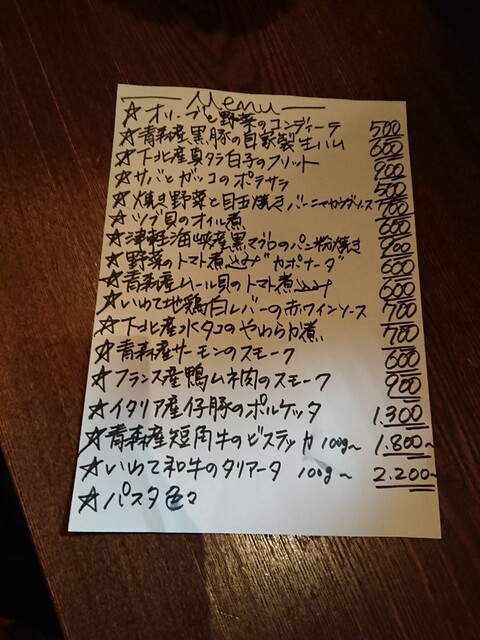 Menu
☆ オリーブと野菜のコンディーテ 500
☆ 青森産黒豚の自家製生ハム 600
☆ 下北産真タラ白子のフリット 900
☆ サバとガッコのポテサラ 500
☆ 焼き野菜と目玉焼きバーニャカウダソース 700
☆ ツブ貝のオイル煮 600
☆ 津軽海峡産黒マグロのパン粉焼き 900
☆ 野菜のトマト煮込み"カポナータ" 600
☆ 青森産ムール貝のトマト煮込み 600
☆ いわて地鶏白レバーの赤ワインソース 700
☆ 下北産水タコのやわらか煮 700
☆ 青森産サーモンのスモーク 600
☆ フランス産鴨ムネ肉のスモーク 900
☆ イタリア産仔豚のポルケッタ 1.300
☆ 青森産短角牛のビステッカ 100g〜 1.800〜
☆ いわて和牛のタリアータ 100g〜 2.200〜
☆ パスタ色々